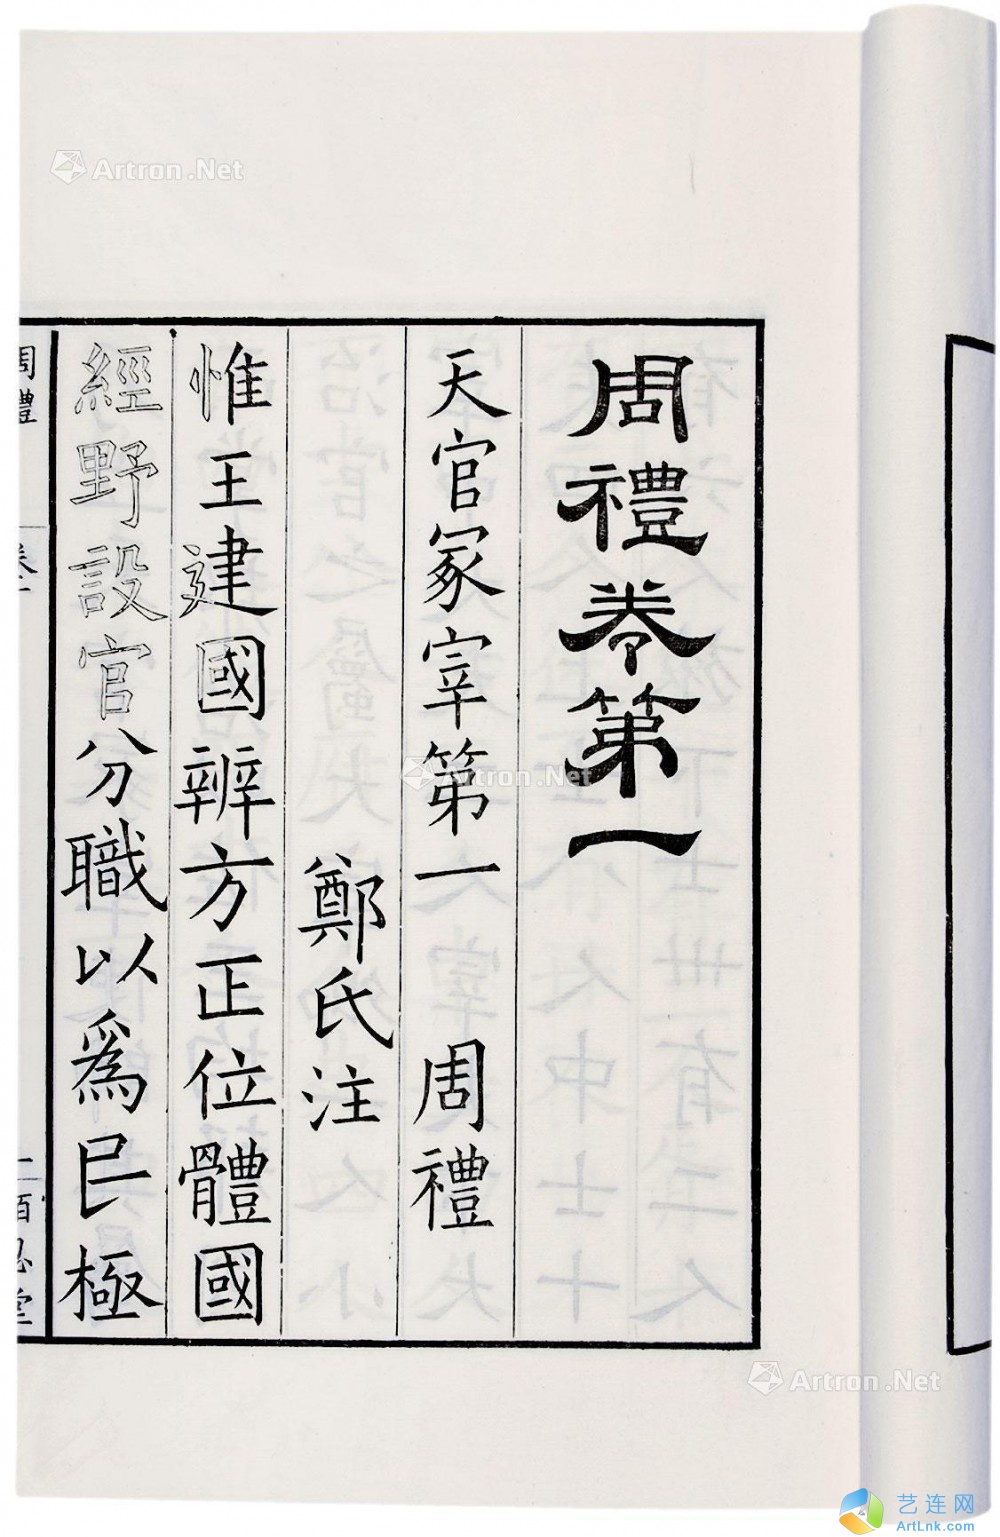 周禮卷第一
天官冢宰第一 周禮
鄭氏注
惟王建國辨方正位體國
經野設官分職以爲民極
周禮 卷一 二百忍堂
Artron.Net
Artron.Net
Artron.Net
艺连网
ArtLnk.com